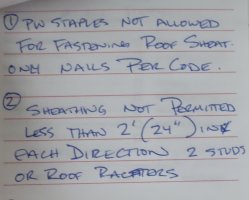 ① PW STAPLES NOT ALLOWED
FOR FASTENING ROOF SHEAT.
ONLY NAILS PER CODE.
② SHEATHING NOT PERMITTED
LESS THAN 2' (24") IN
EACH DIRECTION 2 STUDS
OR ROOF RAFTERS